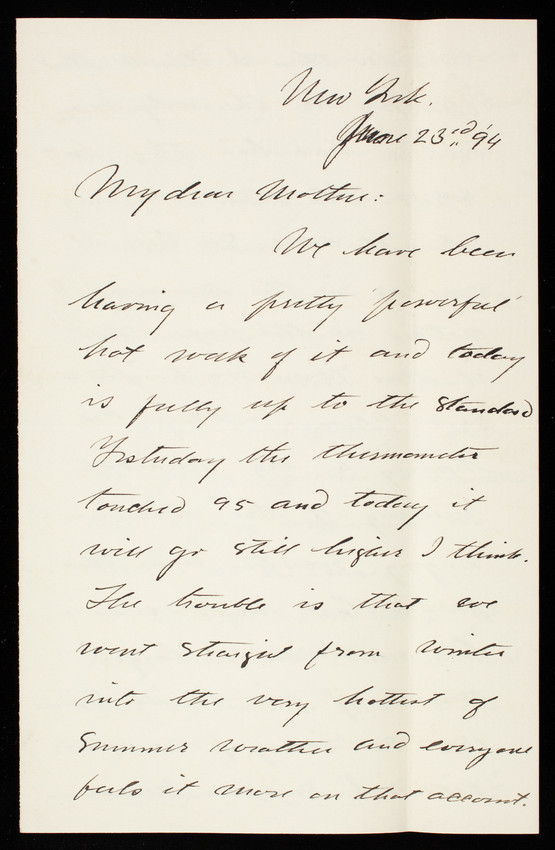 New York.
June 23rd '94
My dear Mother:
We have been
having a pretty 'powerful'
hot week of it and today
is fully up to the standard
Yesterday the thermometer
touched 95 and today it
will go still higher I think.
The trouble is that we
went straight from winter
into the very hottest of
summer weather and everyone
feels it more on that account.